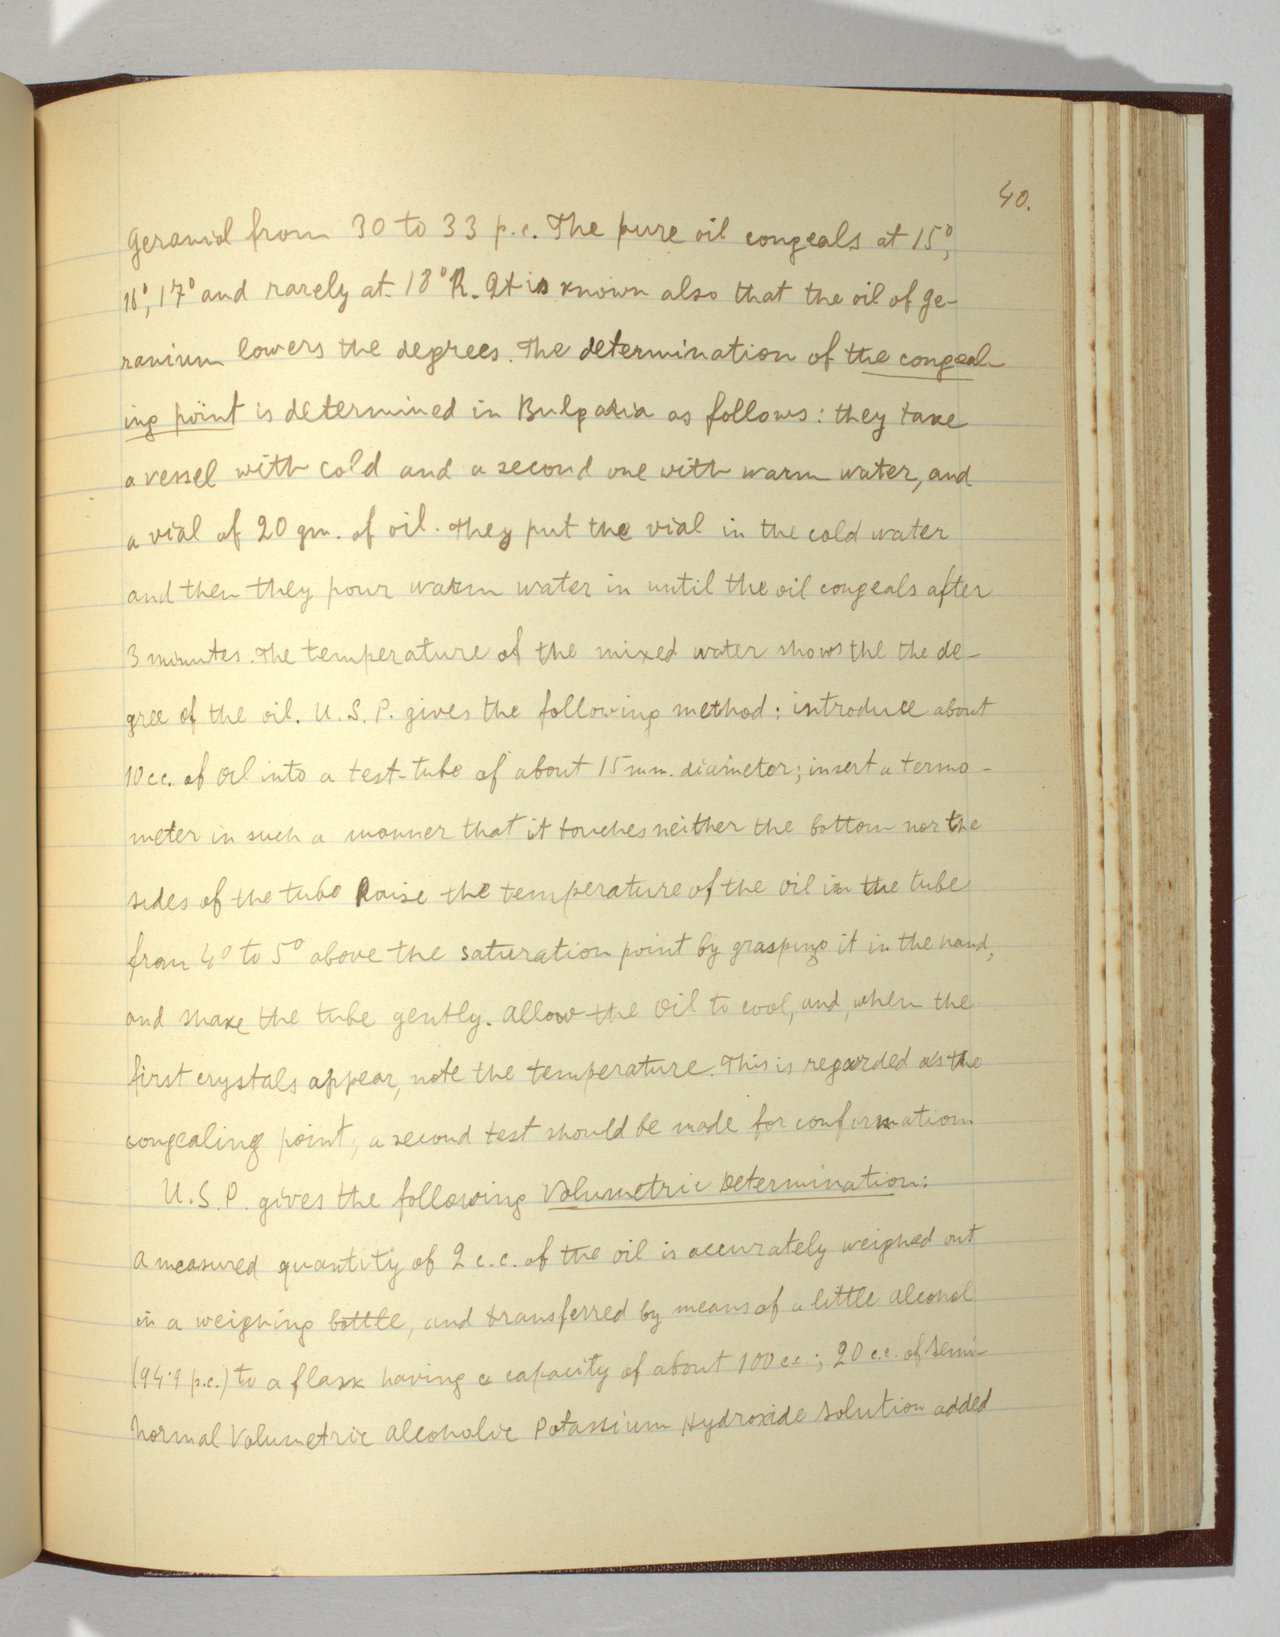 40.
Geraniol from 30 to 33 p.c. The pure oil congeals at 15°,
16°, 17° and rarely at 18° R. It is known also that the oil of ge-
ranium lowers the degrees. The determination of the congeal-
ing point is determined in Bulgaria as follows: they take
a vessel with cold and a second one with warm water, and
a vial of 20 gm. of oil. They put the vial in the cold water
and then they pour warm water in until the oil congeals after
3 minutes. The temperature of the mixed water shows the the de-
gree of the oil. U.S.P. gives the following method: introduce about
10 cc. of oil into a test-tube of about 15 mm. diameter; insert a termo-
meter in such a manner that it touches neither the bottom nor the
sides of the tube Raise the temperature of the oil in the tube
from 4° to 5° above the saturation point by grasping it in the hand,
and shake the tube gently. Allow the oil to cool, and, when the
first crystals appear, note the temperature. This is regarded as the
congealing point; a second test should be made for confirmation
U.S.P. gives the following Volumetric Determination:
A measured quantity of 2 c.c. of the oil is accurately weighed out
in a weighing bottle, and transferred by means of a little alcohol
(94·9 p.c.) to a flask having a capacity of about 100 cc.; 20 c.c. of Semi-
normal Volumetric Alcoholic Potassium Hydroxide Solution added